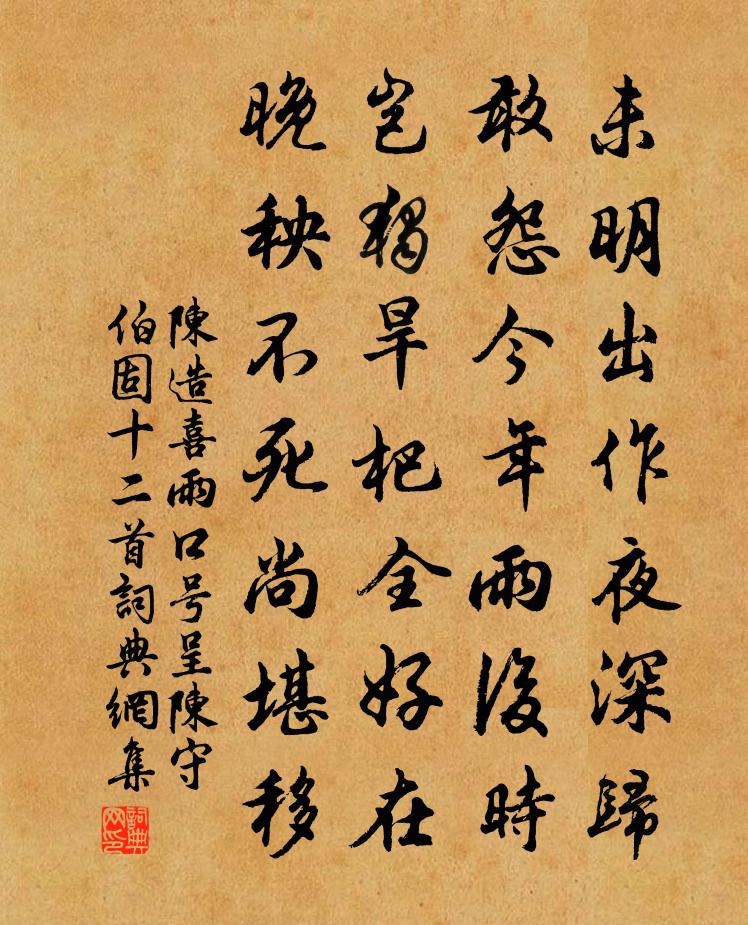 未明出作夜深歸
敢怨今年雨後時
豈獨旱杷全好在
晚秧不死尚堪移
陳造喜雨口号呈陳守
伯固十二首詞典網集
詞典
网印